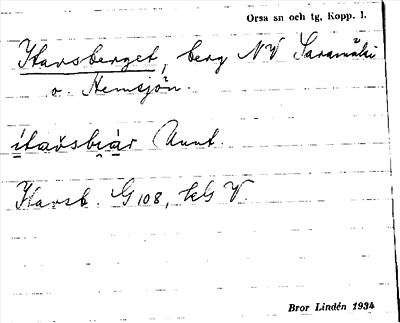 Orsa sn och tg, Kopp. l.
Itavsberget, berg NV Saramäki
o. Hemsjön.
Itavsb. G 108, kG V.
Bror Lindén 1934